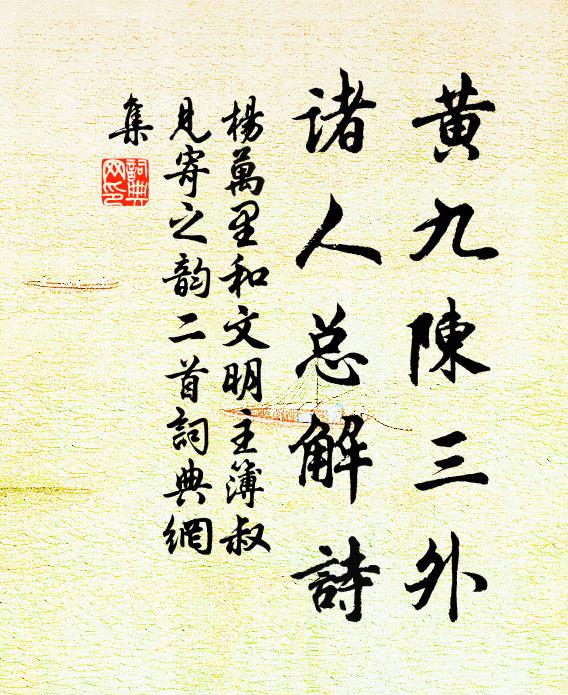 黄九陳三外
諸人总解詩
楊萬里和文明主簿叔
見寄之韵二首詞典網
集
詞典
网印